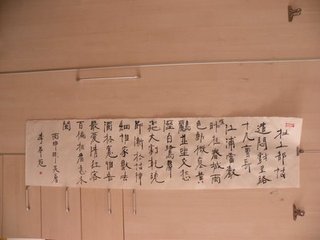 杜工部詩
遣悶戲呈路
十九曹長
江浦雷聲
春城雨
色動微寒黃
鸝並坐交愁
溼白鷺羣
飛太劇乾晚
節漸於詩律
細誰家數去
酒杯寬惟吾
最愛清狂客
百遍相看意未
闌